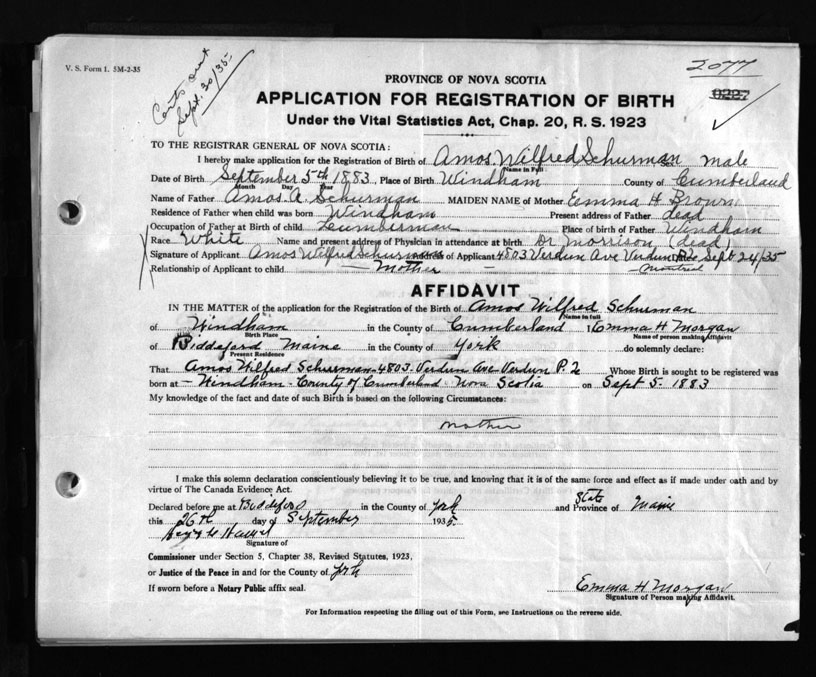 V. S. Form 1. 5M-2-35
Sept. 30/35
2077
PROVINCE OF NOVA SCOTIA
APPLICATION FOR REGISTRATION OF BIRTH
Under the Vital Statistics Act, Chap. 20, R. S. 1923
TO THE REGISTRAR GENERAL OF NOVA SCOTIA:
I hereby make application for the Registration of Birth of Amos Wilfred Schurman Sex male
Name in Full
Date of Birth September 5th 1883, Place of Birth Windham County of Cumberland
Month Day Year
Name of Father Amos A. Schurman MAIDEN NAME of Mother Emma H Brown
Residence of Father when child was born Windham Present address of Father dead
Occupation of Father at Birth of child Lumberman Place of birth of Father Windham
Race White Name and present address of Physician in attendance at birth Dr Morrison (dead)
Signature of Applicant Amos Wilfred Schurman Address of Applicant 4803 Verdun Ave Verdun Sept 24/35
Relationship of Applicant to child — Mother — Montreal
AFFIDAVIT
IN THE MATTER of the application for the Registration of the Birth of Amos Wilfred Schurman
Name in full
of Windham in the County of Cumberland I Emma H Morgan
Birth Place Name of person making Affidavit
of Biddeford Maine in the County of York do solemnly declare:
Present Residence
That Amos Wilfred Schurman 4803 Verdun Ave Verdun P. 2 Whose Birth is sought to be registered was
born at – Windham - County of Cumberland Nova Scotia on Sept 5. 1883
My knowledge of the fact and date of such Birth is based on the following Circumstances:
mother
I make this solemn declaration conscientiously believing it to be true, and knowing that it is of the same force and effect as if made under oath and by
virtue of The Canada Evidence Act.
Declared before me at Biddeford in the County of York and State Province of Maine
this 26th day of September 1935
Signature of
Commissioner under Section 5, Chapter 38, Revised Statutes, 1923,
or Justice of the Peace in and for the County of York
If sworn before a Notary Public affix seal.
Emma H Morgan
Signature of Person making Affidavit.
For Information respecting the filling out of this Form, see Instructions on the reverse side.